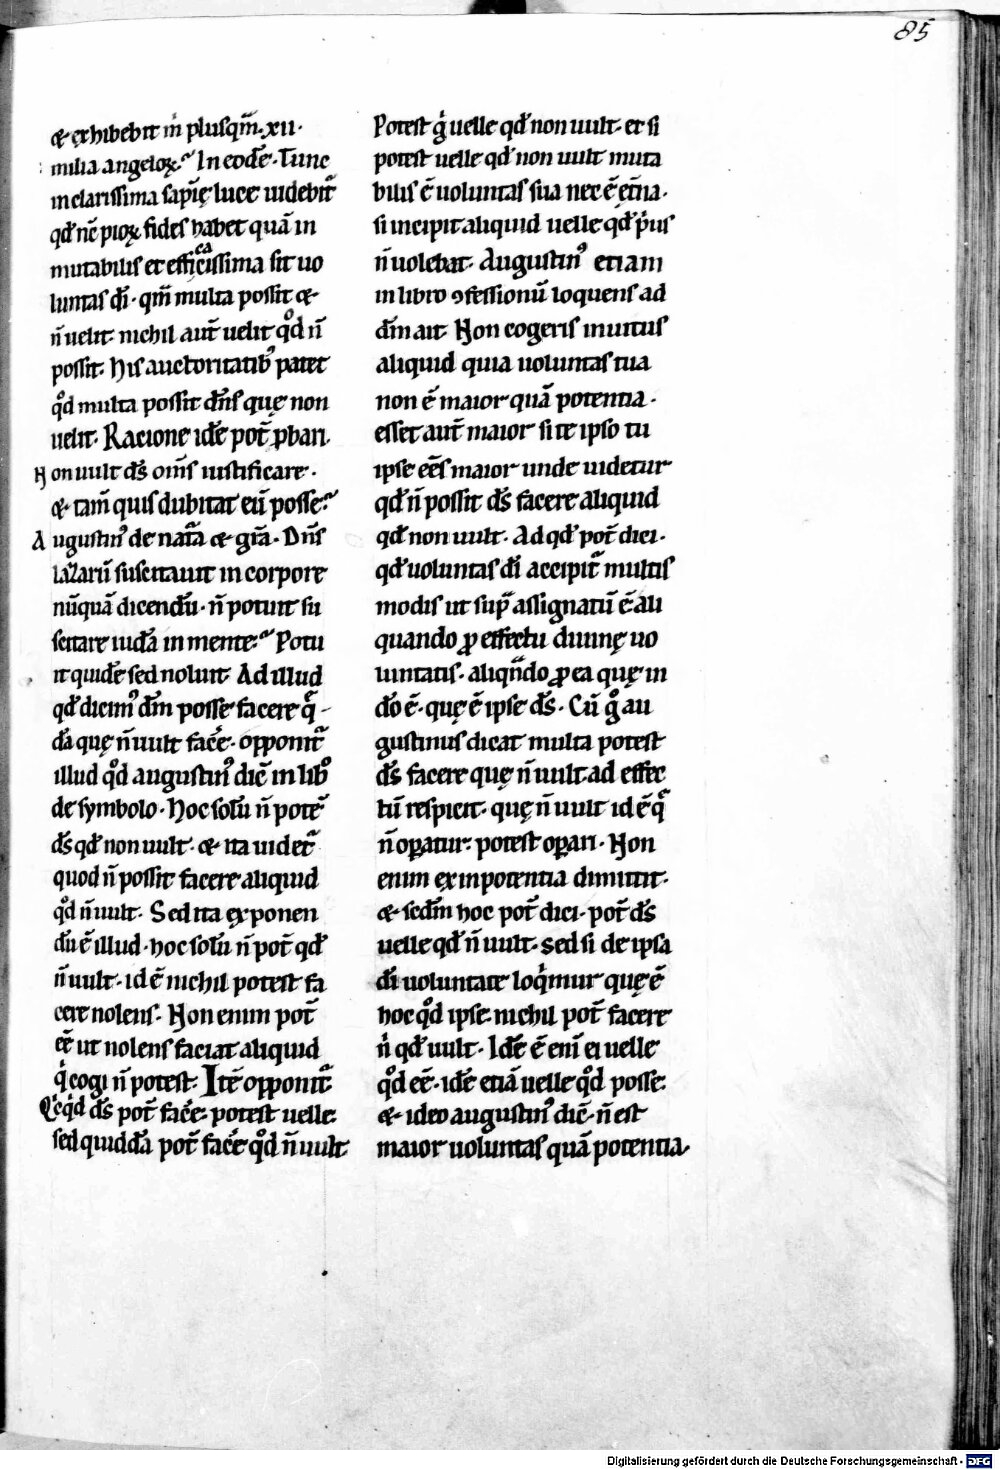 85
& exhibebit m̄ plusqm̄. xii.
milia angeloꝝ. In eodē. Tunc
in clarissima sapīę luce uidebit᷑
qd̄ nc̄ pioꝝ fides habet quā in
mutabilis et efficacissima sit uo
luntas dī. qm̄ multa possit &
n̄ uelit. nichil aut̄ uelit qͦd n̄
possit. His auctoritatibꝰ patet
qͦd multa possit dn̄s quę non
uelit. Racione idē pot̄ ꝓbari.
Non uult ds̄ om̄s iustificare.
& tam̄ quis dubitat eū posse.
Augustinꝰ de nat᷑a & gr̄a. Dn̄s
lazarū suscitauit in corpore
nūquā dicendū. n̄ potuit su
scitare iudā in mente. Potu
it quidē sed noluit. Ad illud
qd̄ dicimꝰ dm̄ posse facere q̄
dā quę n̄ uult facēe. opponit᷑
illud qͦd augustinꝰ dic̄ in libͦ
de symbolo. Hoc solū n̄ potē
ds̄ qd̄ non uult. & ita uidet᷑
quod n̄ possit facere aliquid
qͦd n̄ uult. Sed ita exponen
dū ē illud. hoc solū n̄ pot̄ qd̄
n̄ uult. id ē nichil potest fa
cere nolens. Non enim pot̄
eē ut nolens faciat aliquid
qͥ cogi n̄ potest. Itē opponit᷑.
Qͥcqͥd ds̄ pot̄ facēe. potest uelle.
sed quiddā pot̄ facēe qͦd n̄ uult.
Potest gͥ uelle qd̄ non uult. et si
potest uelle qd̄ non uult muta
bilis ē uoluntas sua nec ē et̄na.
si incipit aliquid uelle qd̄ pͥus
n̄ uolebat. Augustinꝰ etiam
in libro ꝯfessionū loquens ad
dm̄ ait. Non cogeris inuitus
aliquid quia uoluntas tua
non ē maior quā potentia.
esset aut̄ maior si te ipso tu
ipse eēs maior unde uidetur
qd̄ n̄ possit ds̄ facere aliquid
qd̄ non uult. Ad qd̄ pot̄ dici.
qd̄ uoluntas dī accipit᷑ multis
modis ut sup᷑ assignatū ē ali
quando ꝓ effectu diuinę uo
luntatis. aliqn̄do ꝓ ea quę in
dō ē. quę ē ipse ds̄. Cū gͦ au
gustinus dicat multa potest
ds̄ facere quę n̄ uult. ad effec
tū respicit. quę n̄ uult id ē q᷑
n̄ oꝑatur. potest oꝑari. Non
enim ex inpotentia dimittit.
& sedm̄ hoc pot̄ dici. pot̄ ds̄
uelle qd̄ n̄ uult. sed si de ipsa
dī uoluntate loqͥmur quę ē
hoc qͦd ipse. nichil pot̄ facere
nͥ qd̄ uult. Idē ē enī ei uelle
qͦd eē. idē etiā uelle qͦd posse.
& ideo augustinꝰ dic̄. n̄ est
maior uoluntas quā potentia.
Digitalisierung gefördert durch die Deutsche Forschungsgemeinschaft - DFG